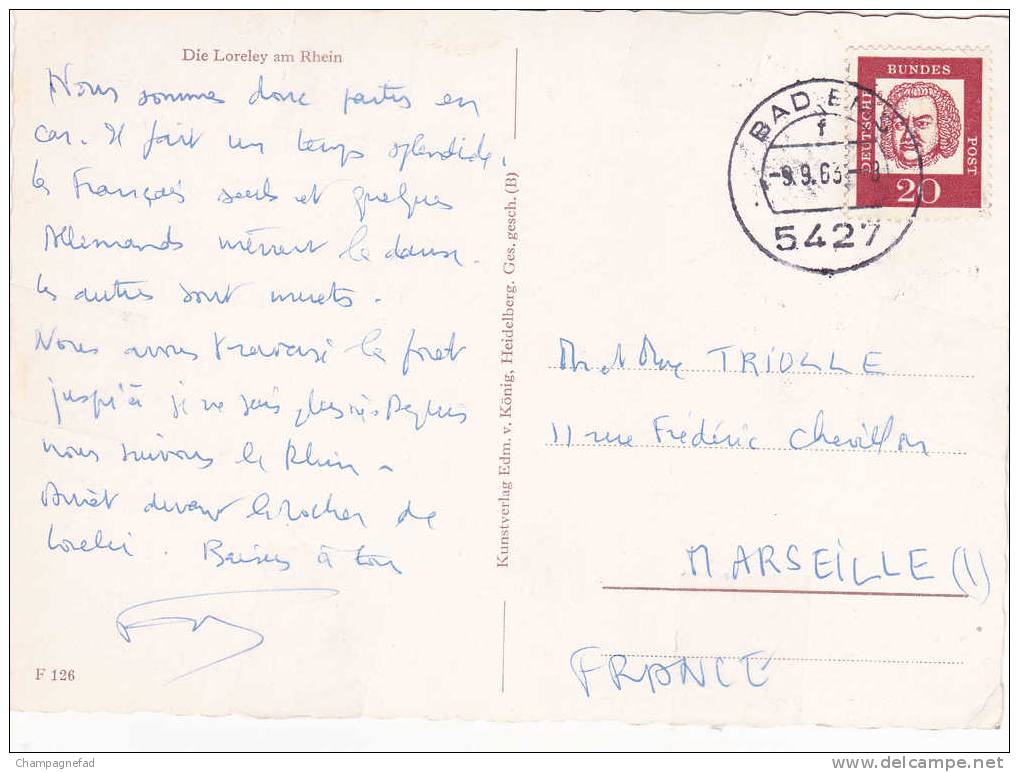 Die Loreley am Rhein
Nous sommes donc partis en
car. Il fait un temps splendide,
les Français seuls et quelques
Allemands mènent la danse.
les autres sont muets.
Nous avons traversé la forêt
jusqu'à je ne sais plus où. Depuis
nous suivons le Rhin.
Arrêt devant le Rocher de
Lorelei. Baisers à tous
F 126
Kunstverlag Edm. v. König, Heidelberg. Ges. gesch. (B)
BAD EMS
f
-9.9.63-8
5427
DEUTSCHE
BUNDES
POST
20
Mr et Mme TRIOLLE
11 rue Frédéric Chevillon
MARSEILLE (1)
FRANCE
Champagnefad
www.delcampe.net